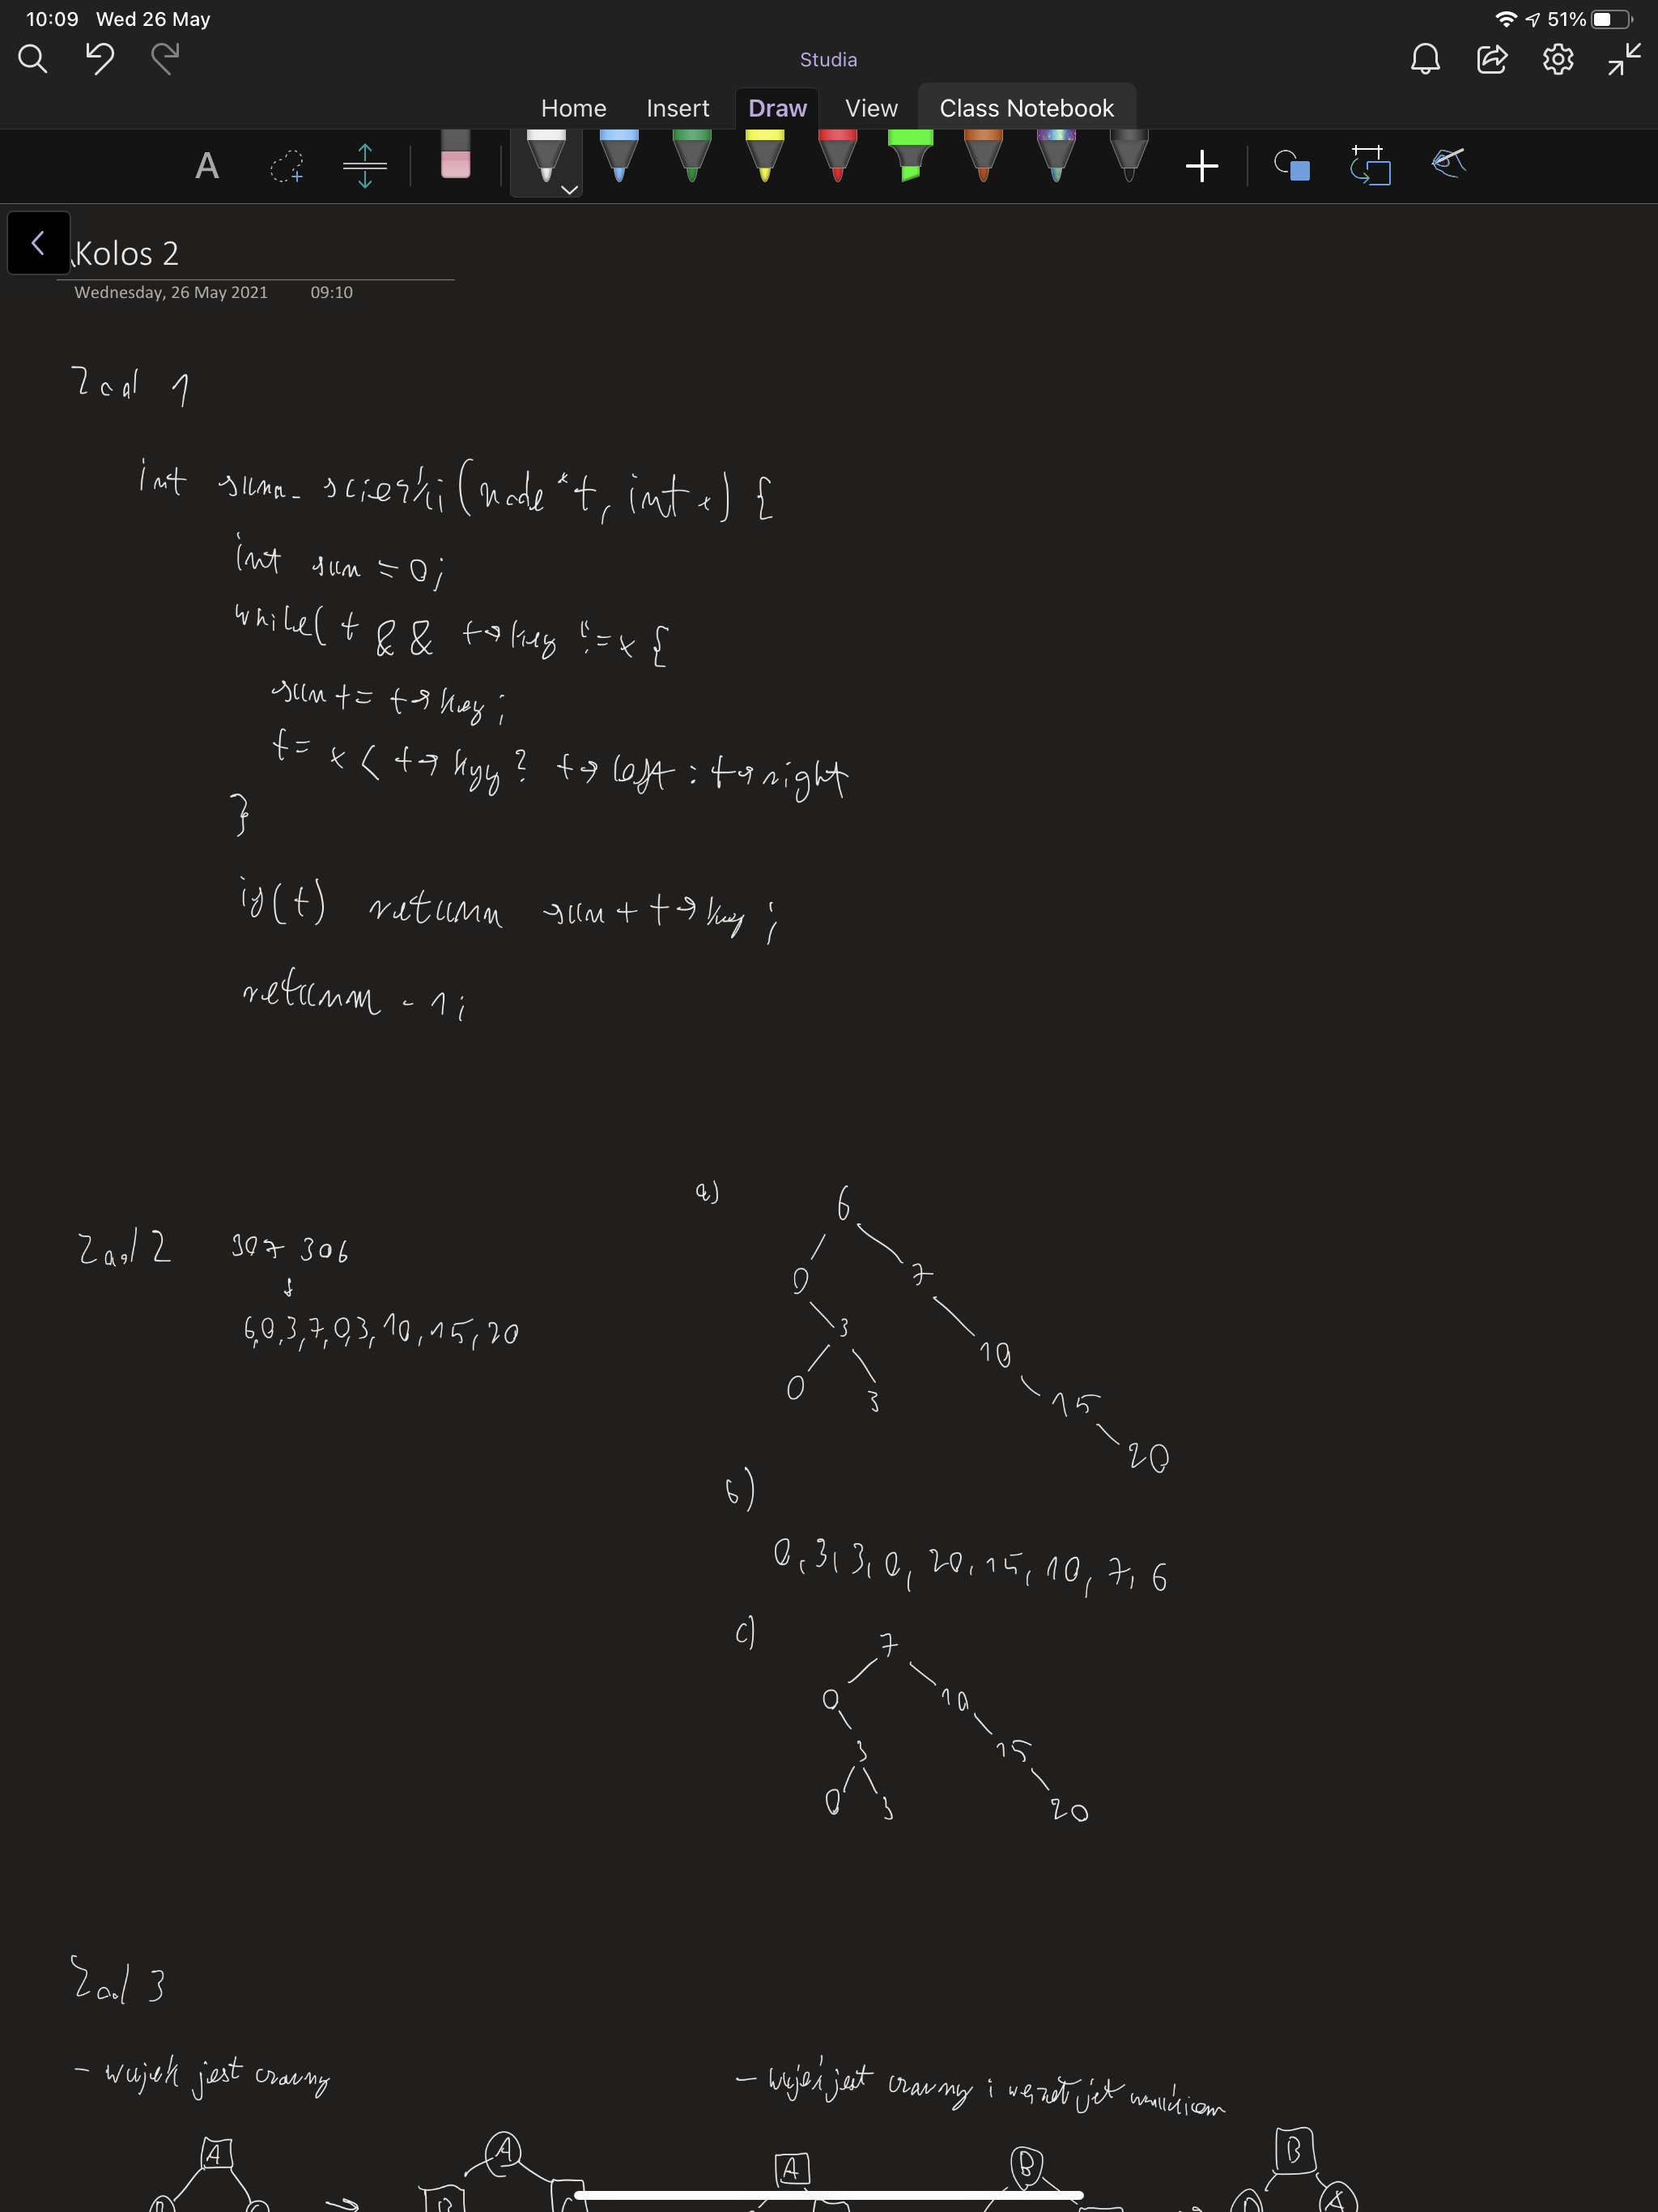 10:09 Wed 26 May
51%
Studia
Home Insert Draw View Class Notebook
A
Kolos 2
Wednesday, 26 May 2021 09:10
Zad 1
int suma_sciezki(node *t, int x) {
int sum = 0;
while( t && t→key != x {
sum += t→key;
t = x < t→kyy ? t→left : t→right
}
if(t) return sum + t→key;
return -1;
Zad 2 307 306
↓
6,0,3,7,0,3,10,15,20
a)
6
0 7
3 10
0 3 15
20
b)
0,3,3,0,20,15,10,7,6
c)
7
0 10
3 15
0 3 20
Zad 3
- wujek jest czarny
- wujek jest czarny i węzeł jest
A A A B B
B C
A